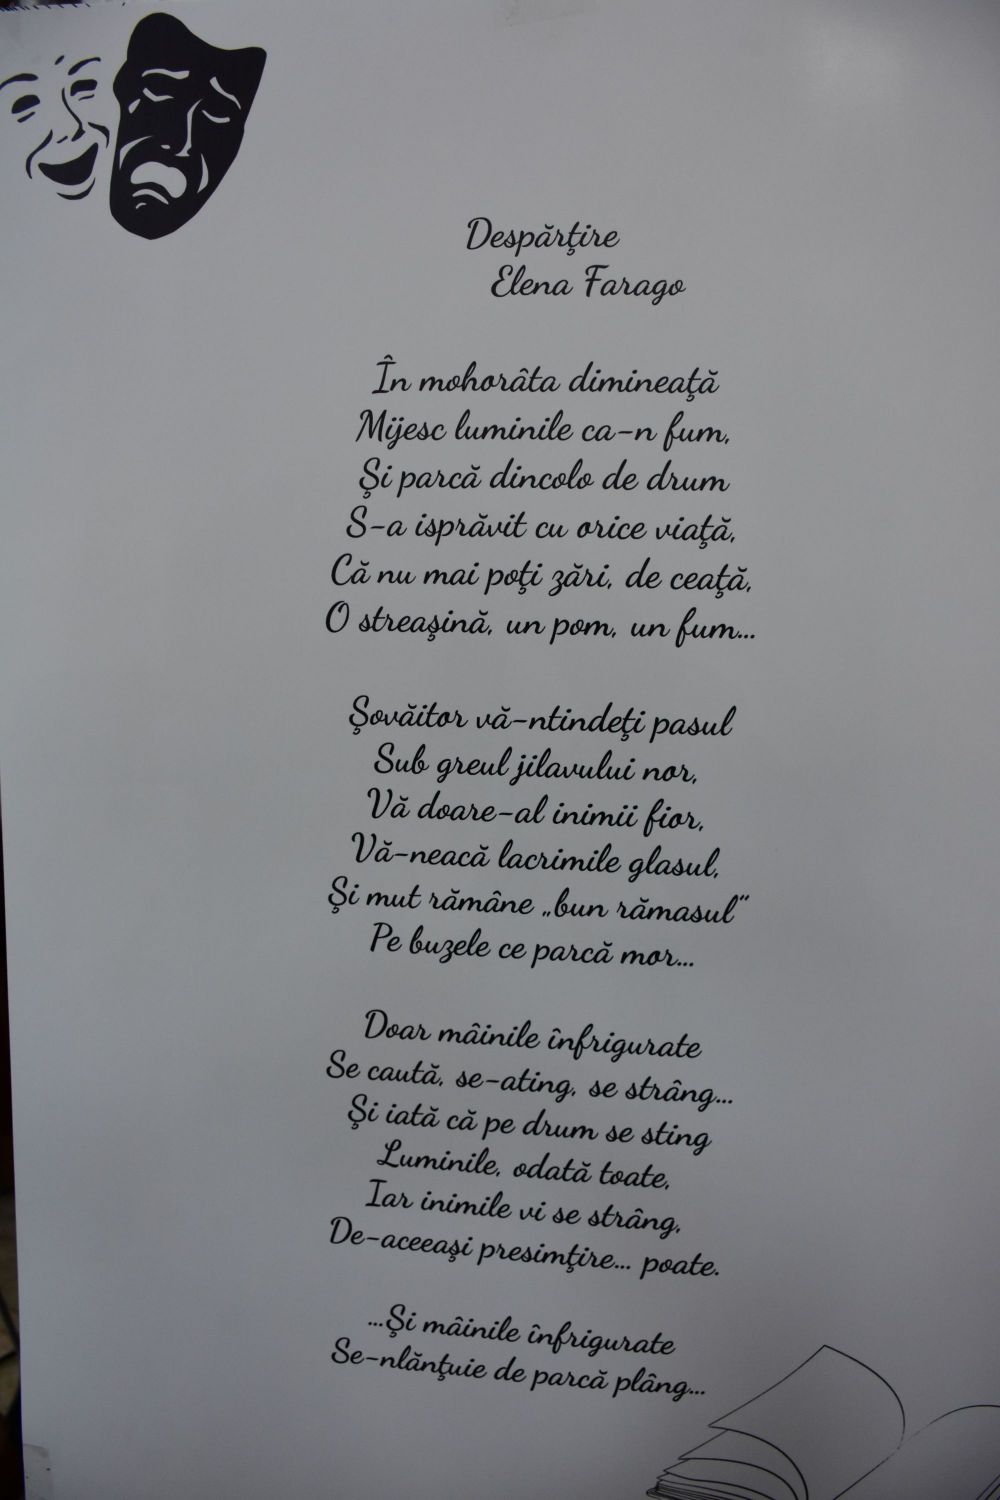 Despărţire
Elena Farago
În mohorâta dimineaţă
Mijesc luminile ca-n fum,
Şi parcă dincolo de drum
S-a isprăvit cu orice viaţă,
Că nu mai poţi zări, de ceaţă,
O streaşină, un pom, un fum...
Şovăitor vă-ntindeţi pasul
Sub greul jilavului nor,
Vă doare-al inimii fior,
Vă-neacă lacrimile glasul,
Şi mut rămâne „bun rămasul”
Pe buzele ce parcă mor...
Doar mâinile înfrigurate
Se caută, se-ating, se strâng...
Şi iată că pe drum se sting
Luminile, odată toate,
Iar inimile vi se strâng,
De-aceeaşi presimţire... poate.
...Şi mâinile înfrigurate
Se-nlănţuie de parcă plâng...